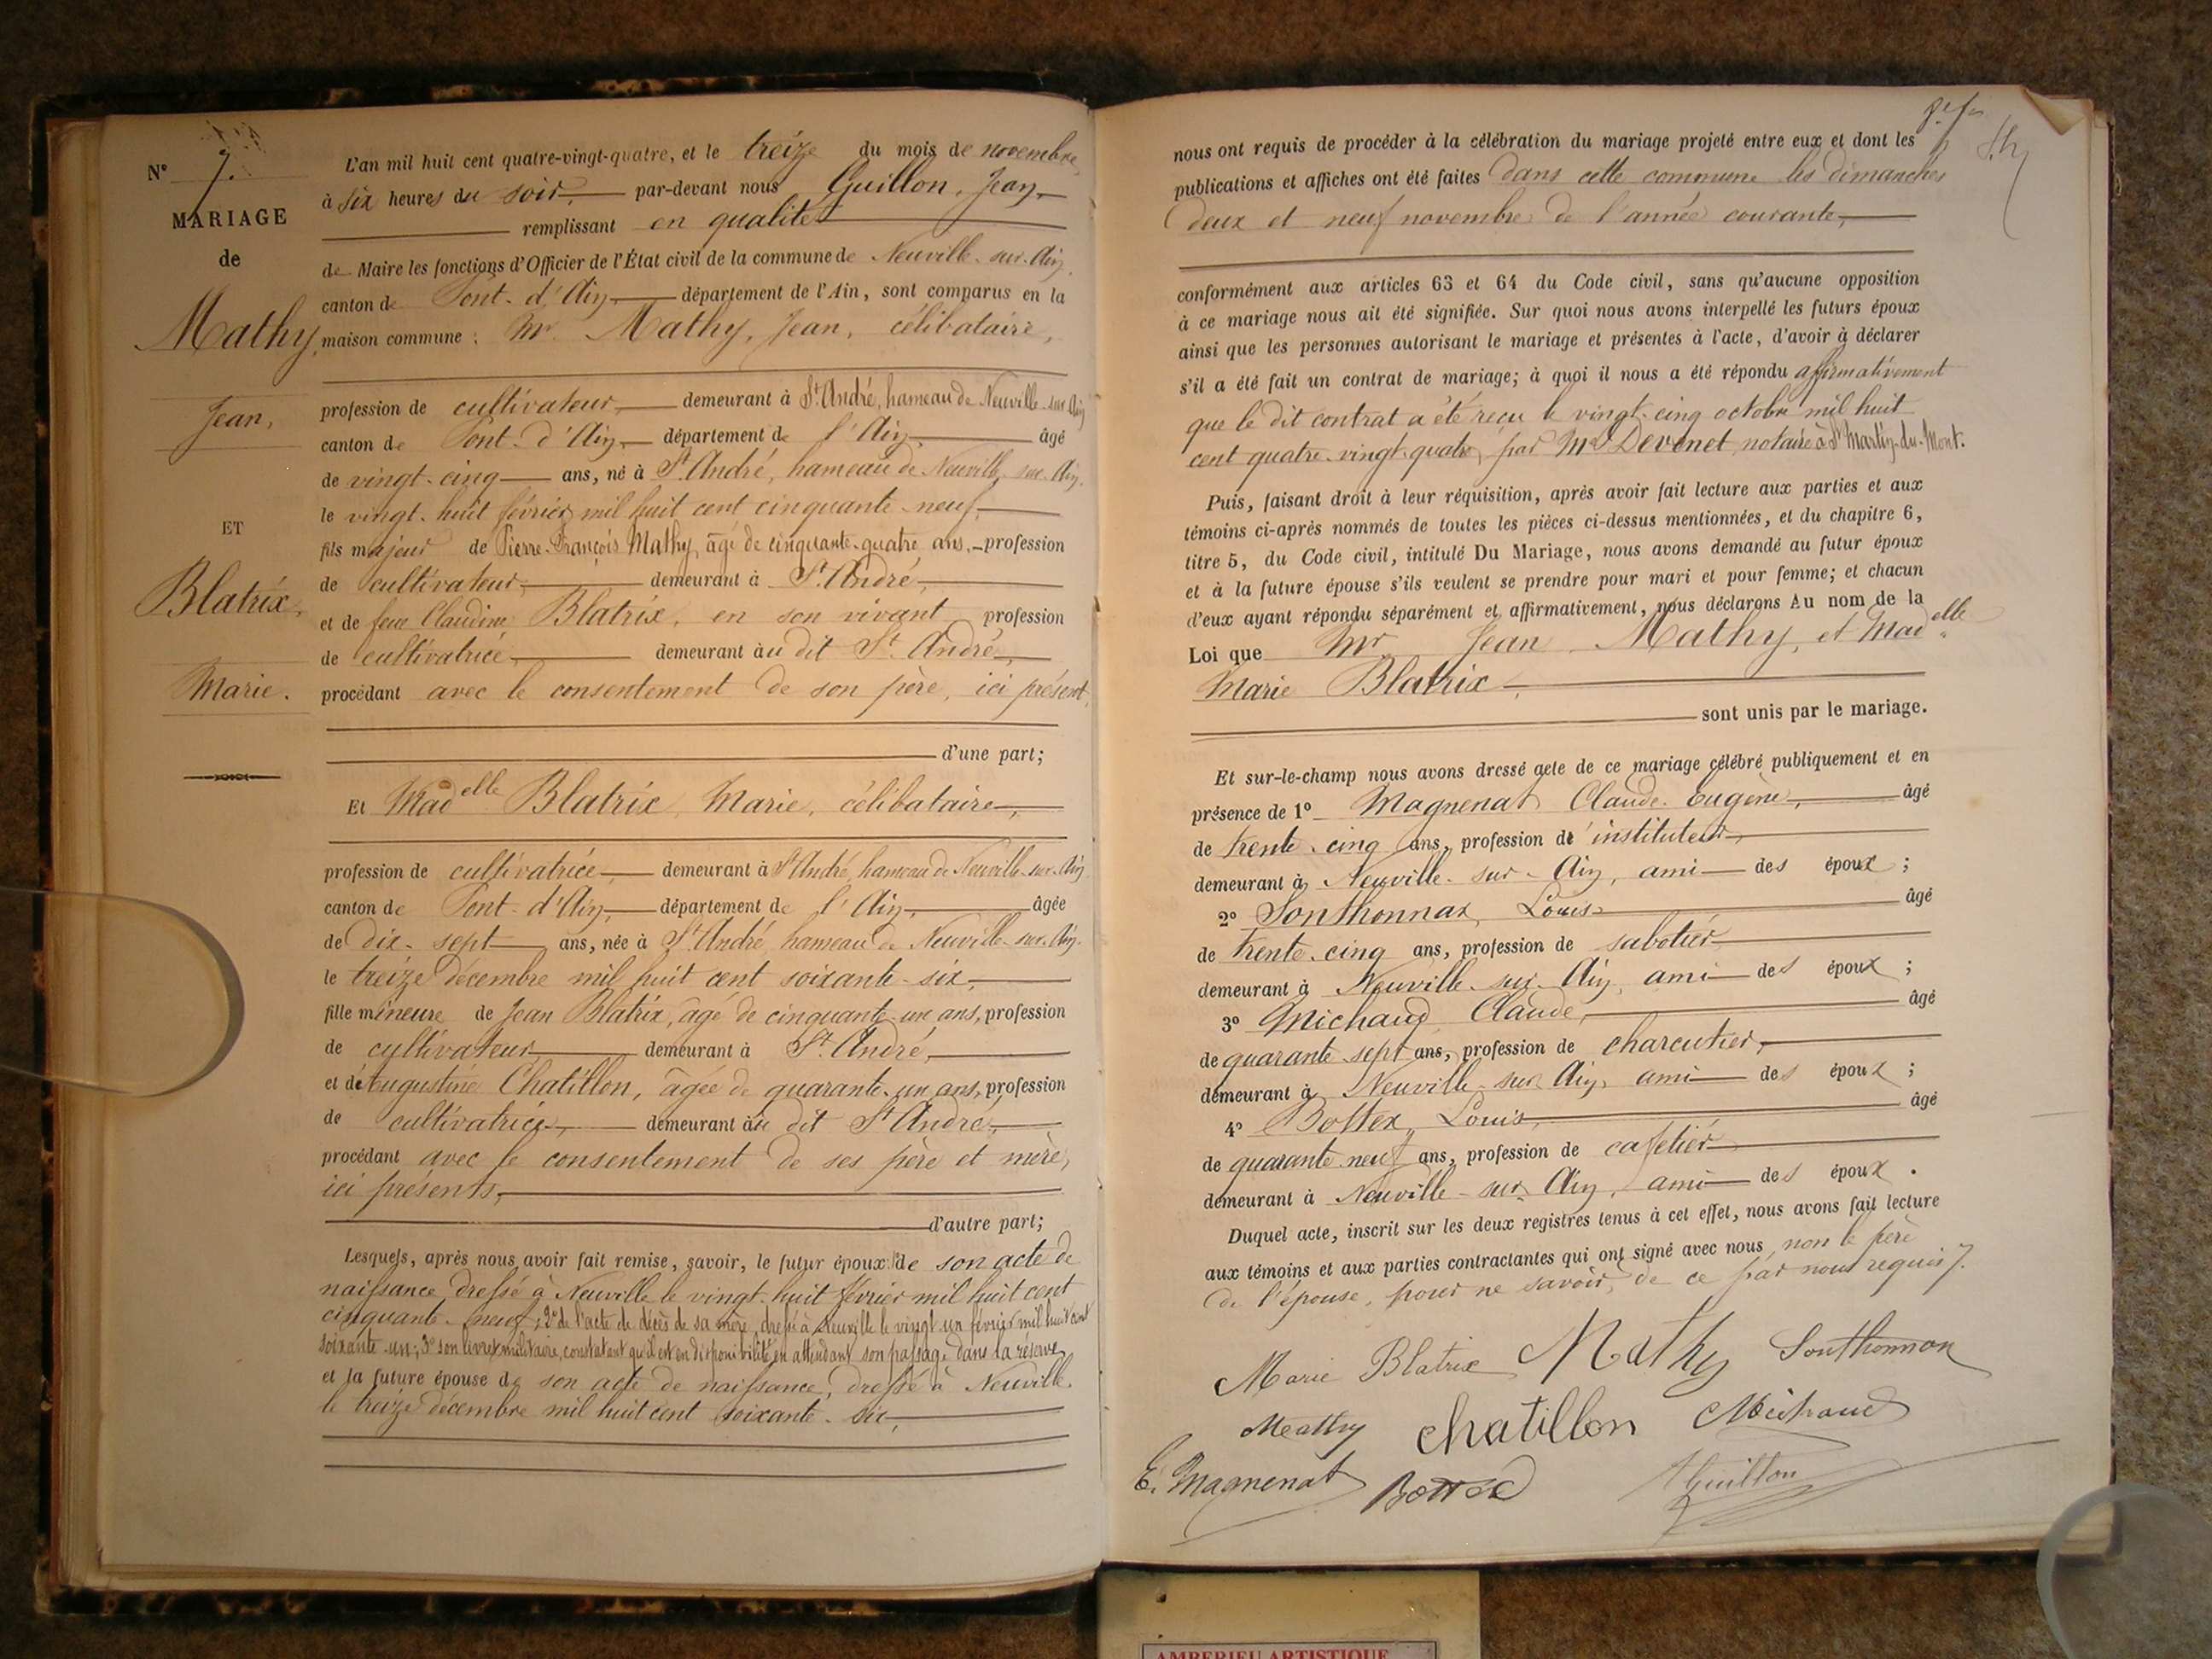 N° 7.
MARIAGE
de
Mathy,
Jean,
ET
Blatrix,
Marie.
L'an mil huit cent quatre-vingt-quatre, et le treize du mois de novembre,
à six heures du soir, par-devant nous Guillon, Jean,
remplissant en qualité
de Maire les fonctions d'Officier de l'État civil de la commune de Neuville-sur-Ain,
canton de Pont-d'Ain, département de l'Ain, sont comparus en la
maison commune : Mr Mathy, Jean, célibataire,
profession de cultivateur, demeurant à St André, hameau de Neuville-sur-Ain
canton de Pont-d'Ain, département de l'Ain, âgé
de vingt-cinq ans, né à St André, hameau de Neuville-sur-Ain,
le vingt-huit février mil huit cent cinquante-neuf,
fils majeur de Pierre-François Mathy, âgé de cinquante-quatre ans, profession
de cultivateur, demeurant à St André,
et de feue Claudine Blatrix, en son vivant profession
de cultivatrice, demeurant au dit St André,
procédant avec le consentement de son père, ici présent,
d'une part;
Et Madelle Blatrix, Marie, célibataire,
profession de cultivatrice, demeurant à St André, hameau de Neuville-sur-Ain
canton de Pont-d'Ain, département de l'Ain, âgée
de dix-sept ans, née à St André, hameau de Neuville-sur-Ain,
le treize décembre mil huit cent soixante-six,
fille mineure de Jean Blatrix, âgé de cinquante-un ans, profession
de cultivateur, demeurant à St André,
et de Augustine Chatillon, âgée de quarante-un ans, profession
de cultivatrice, demeurant au dit St André,
procédant avec le consentement de ses père et mère,
ici présents,
d'autre part;
Lesquels, après nous avoir fait remise, savoir, le futur époux 1° de son acte de
naissance, dressé à Neuville le vingt-huit février mil huit cent
cinquante-neuf; 2° de l'acte de décès de sa mère, dressé à Neuville le vingt un février mil huit cent
soixante-un; 3° son livret militaire, constatant qu'il est en disponibilité en attendant son passage dans la réserve,
et la future épouse de son acte de naissance, dressé à Neuville
le treize décembre mil huit cent soixante-six,
nous ont requis de procéder à la célébration du mariage projeté entre eux et dont les
publications et affiches ont été faites dans cette commune les dimanches
deux et neuf novembre de l'année courante,
conformément aux articles 63 et 64 du Code civil, sans qu'aucune opposition
à ce mariage nous ait été signifiée. Sur quoi nous avons interpellé les futurs époux
ainsi que les personnes autorisant le mariage et présentes à l'acte, d'avoir à déclarer
s'il a été fait un contrat de mariage; à quoi il nous a été répondu affirmativement
que le dit contrat a été reçu le vingt-cinq octobre mil huit
cent quatre-vingt-quatre, par Me Devenet, notaire à St Martin-du-Mont.
Puis, faisant droit à leur réquisition, après avoir fait lecture aux parties et aux
témoins ci-après nommés de toutes les pièces ci-dessus mentionnées, et du chapitre 6,
titre 5, du Code civil, intitulé Du Mariage, nous avons demandé au futur époux
et à la future épouse s'ils veulent se prendre pour mari et pour femme; et chacun
d'eux ayant répondu séparément et affirmativement, nous déclarons Au nom de la
Loi que Mr Jean Mathy, et Madelle
Marie Blatrix,
sont unis par le mariage.
Et sur-le-champ nous avons dressé acte de ce mariage célébré publiquement et en
présence de 1° Magnenat Claude-Eugène, âgé
de trente-cinq ans, profession d'instituteur,
demeurant à Neuville-sur-Ain, ami des époux ;
2° Sonthonnax, Louis âgé
de trente-cinq ans, profession de sabotier
demeurant à Neuville-sur-Ain, ami des époux ;
3° Michaud, Claude, âgé
de quarante-sept ans, profession de charcutier,
demeurant à Neuville-sur-Ain, ami des époux ;
4° Bottex, Louis, âgé
de quarante-neuf ans, profession de cafetier
demeurant à Neuville-sur-Ain, ami des époux .
Duquel acte, inscrit sur les deux registres tenus à cet effet, nous avons fait lecture
aux témoins et aux parties contractantes qui ont signé avec nous, non le père
de l'épouse, pour ne savoir, de ce par nous requis.
Marie Blatrix Mathy Sonthonnax
Mathy chatillon Michaud
E. Magnenat Bottex Guillon
AMBERIEU ARTISTIQUE